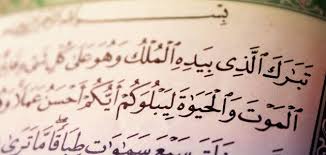 بِسْـ
تَبَٰرَكَ ٱلَّذِي بِيَدِهِ ٱلْمُلْكُ وَهُوَ عَلَىٰ كُلِّ
ٱلْمَوْتَ وَٱلْحَيَوٰةَ لِيَبْلُوَكُمْ أَيُّكُمْ أَحْسَنُ عَمَلًا
خَلَقَ سَبْعَ سَمَٰوَٰتٍ طِبَاقًا مَّا تَرَىٰ